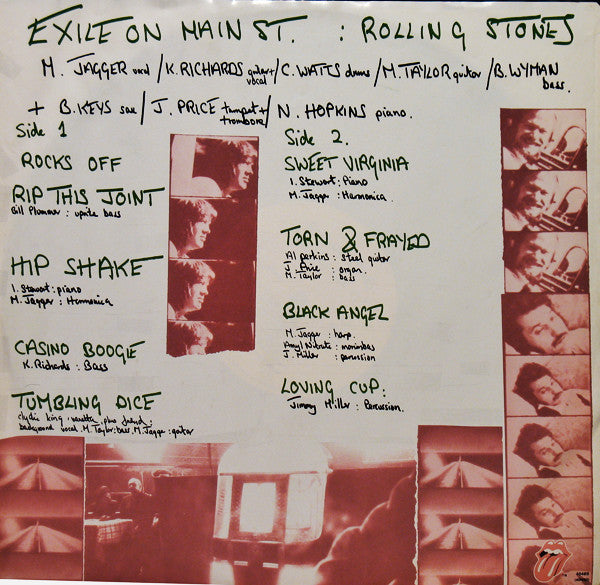 EXILE ON MAIN ST. : ROLLING STONES
M. JAGGER vocal / K. RICHARDS guitar + vocal / C. WATTS drums / M. TAYLOR guitar / B. WYMAN bass.
+ B. KEYS sax / J. PRICE trumpet + trombone / N. HOPKINS piano.
Side 1
ROCKS OFF
RIP THIS JOINT
Bill Plummer : uprite bass
HIP SHAKE
I. Stewart : piano
M. Jagger : Harmonica
CASINO BOOGIE
K. Richards : Bass
TUMBLING DICE
clydie king, vanetta, plus friend :
background vocal. M. Taylor : bass. M. Jagger : guitar
Side 2.
SWEET VIRGINIA
I. Stewart : Piano
M. Jagger : Harmonica.
TORN & FRAYED
Al perkins : Steel guitar
J. Price : organ.
M. Taylor : bass
BLACK ANGEL
M. Jagger : harp.
Amyl Nitrate : marimbas
J. Miller : percussion
LOVING CUP :
Jimmy Miller : Percussion.